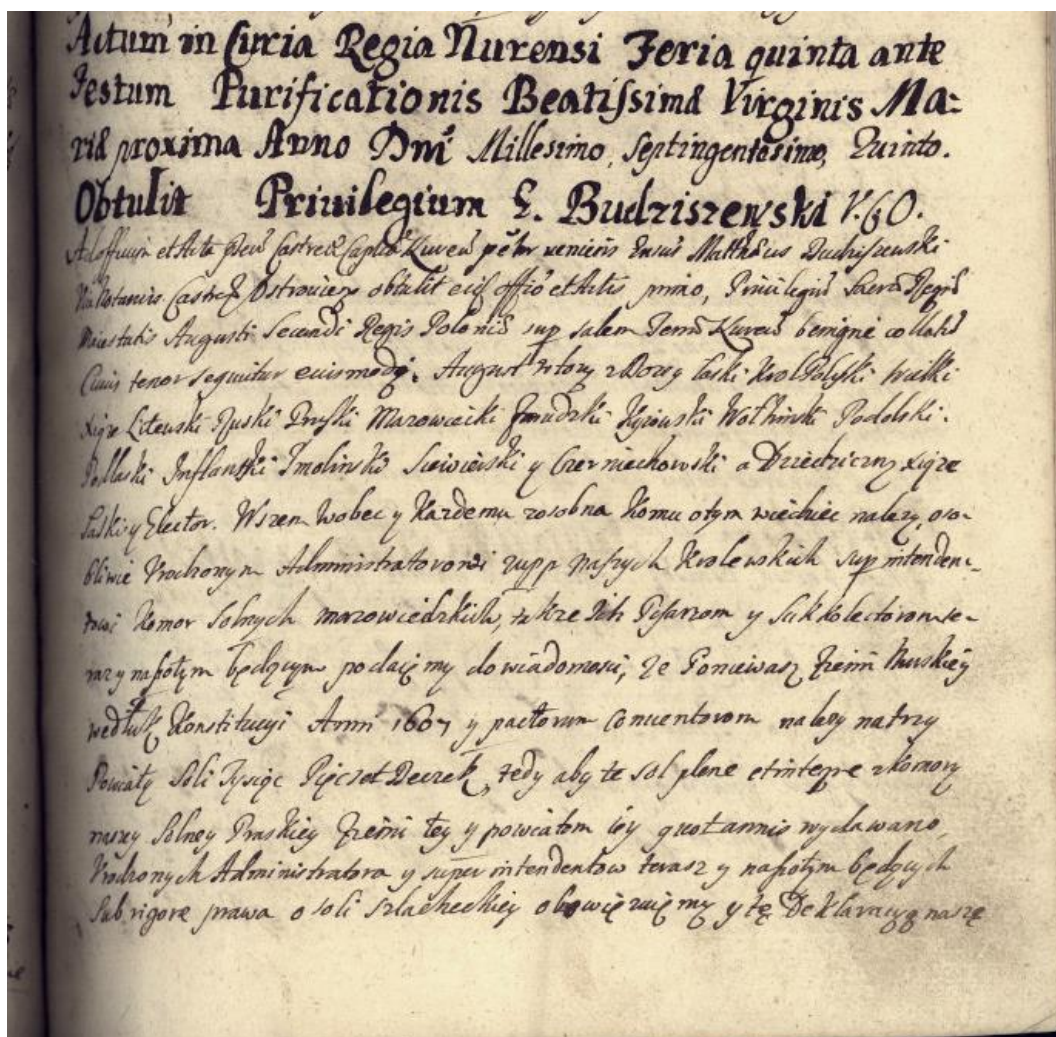 Actum in Curia Regia Nurensi Feria quinta ante
Festum Purificationis Beatissimæ Virginis Ma=
riæ proxima Anno Dni Millesimo, Septingentesimo, Quinto.
Obtulit Priuilegium G. Budziszewski V.C.O.
Ad offium et Acta Castren veniens Matthæus Budziszewski
Castren Ostrouien obtulit eid offio et Actis Priuilegiū Sacræ Regiæ
Maiestatis Augusti Secundi Regis Poloniæ sup salem Terræ benigne collatū
Cuius tenor sequitur eiusmodi. August wtory z Bozy łaski Krol Polski Wielki
Xiąze Litewski Ruski Pruski Mazowiecki Zmudzki Kyiowski Wołhinski Podolski.
Podlaski Inflantski Smolinski Siewierski y Czerniechowski a Dziedziczny xiąze
Saski y Elector. Wszem Wobec y Kazdemu zosobna Komu otym wiedziec nalezy, oso-
bliwie Vrodzonym Administratorowi zupp naszych Krolewskich sup intenden-
towi Komor Solnych mazowiedzkich, takze Ich Pisarzom y Sukkolectorom te-
razy napotym będącym podaię my do wiadomosci, ze Poniewasz Ziemi Nurskiey
według Konstitucyi Anni 1607 y pactorum Conuentorom nalezy natrzy
Powiaty Soli Tysiąc Pięcset Beczek, tedy aby te sol plene et integre zkomory
naszey Solney Praskiey Ziemi tey y powiatom iey quotannis wydawano,
Vrodzonych Administratora y super intendentow terasz y napotym będących
Sub rigore prawa o soli szlacheckiey obowięzuię my y tę Deklaracyą naszę